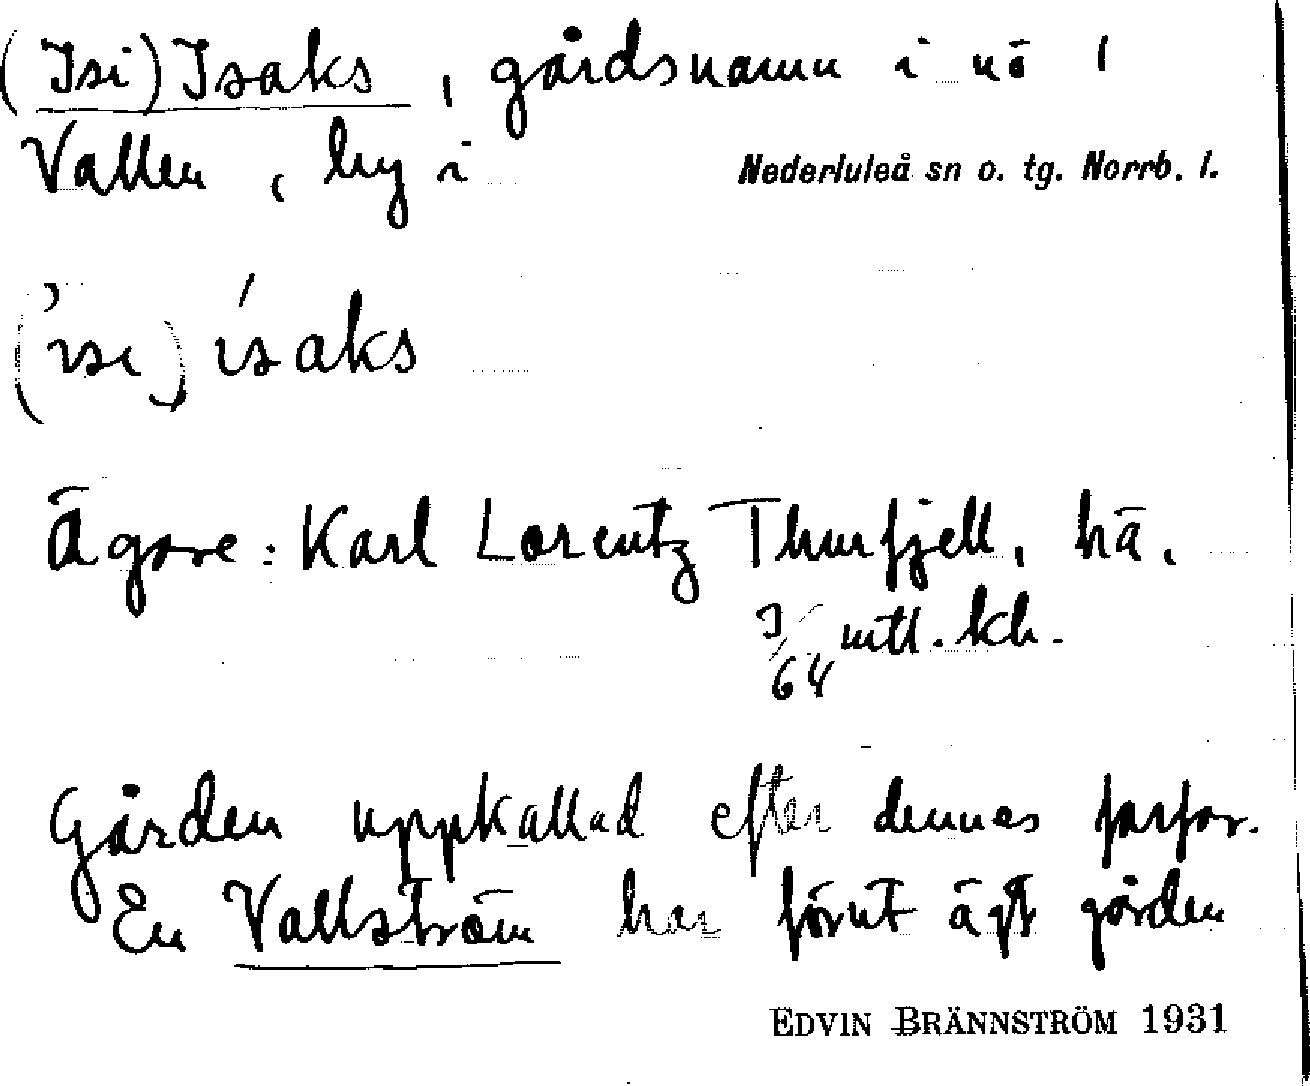 (Isi) Isaks, gårdsnamn i nö i
Vallen, by i Nederluleå sn o. tg. Norrb. l.
('isi) ísaks
Ägare: Karl Lorentz Thurfjell, hä.
3/64 mtl. kh.
Gården uppkallad efter dennes farfar.
En Vallström har förut ägt gården
EDVIN BRÄNNSTRÖM 1931